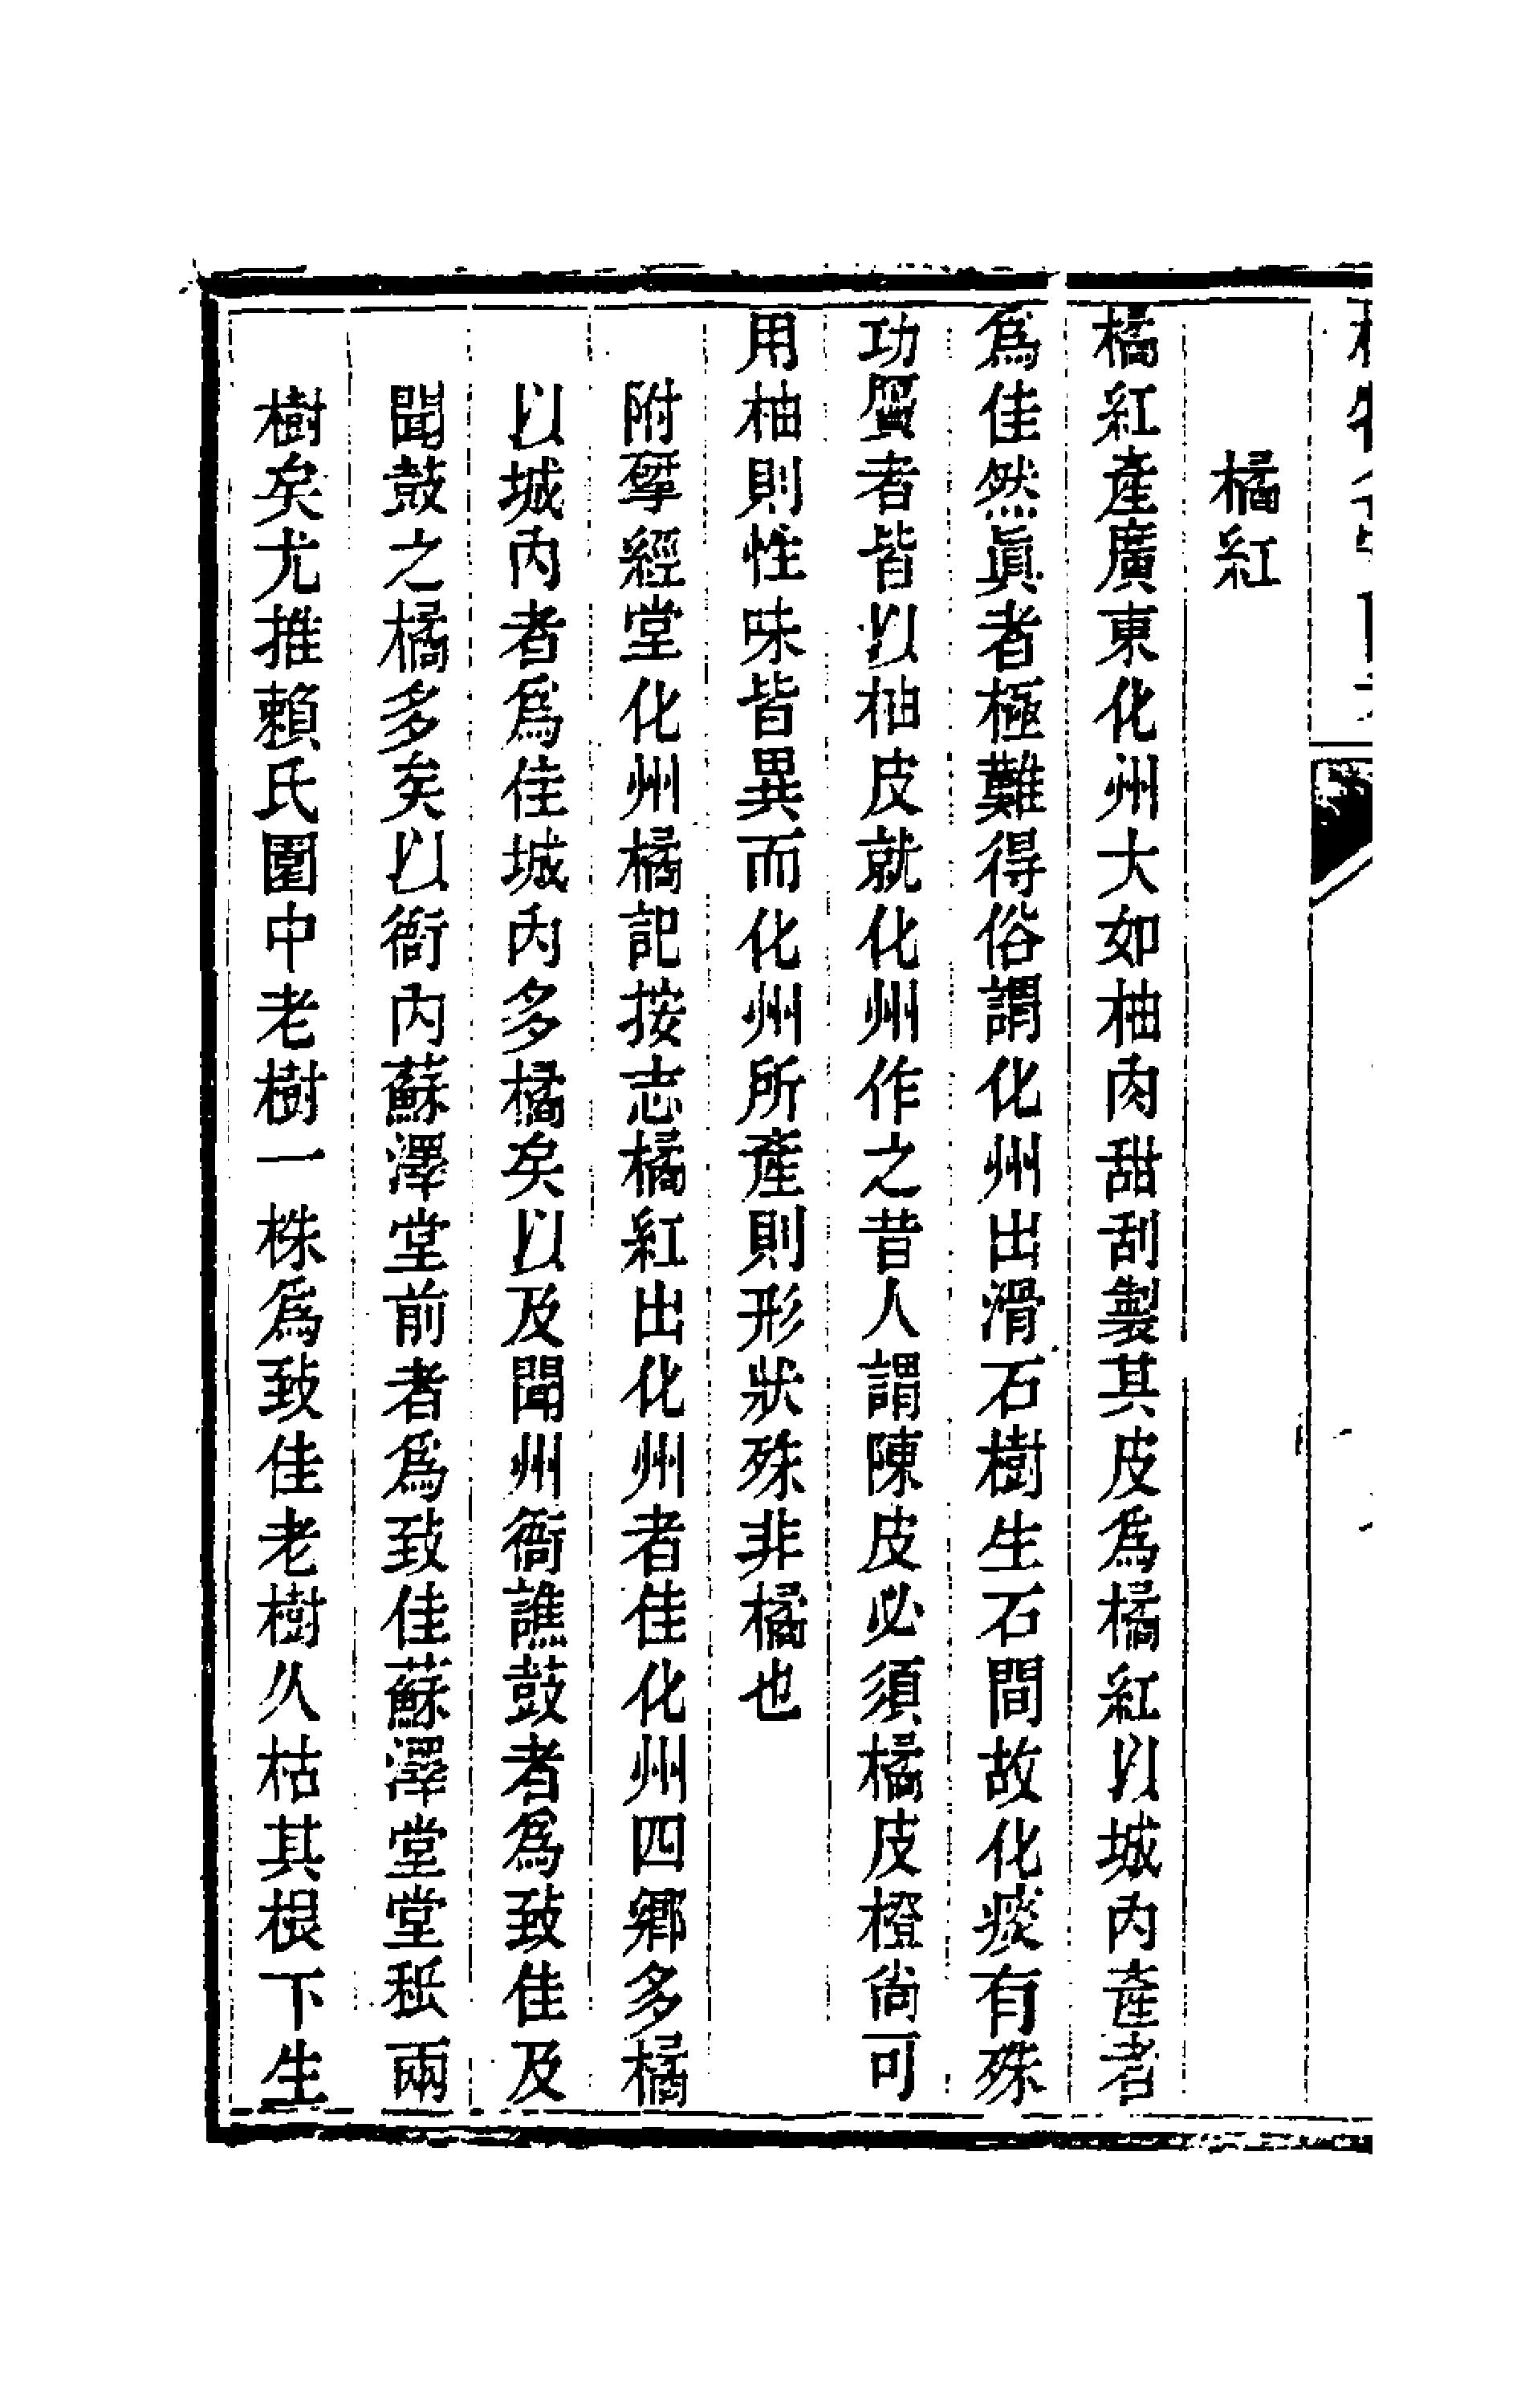 橘紅
橘紅產廣東化州大如柚肉甜刮製其皮爲橘紅以城內產者
爲佳然眞者極難得俗謂化州出滑石樹生石間故化痰有殊
功贋者皆以柚皮就化州作之昔人謂陳皮必須橘皮橙尚可
用柚則性味皆異而化州所產則形狀殊非橘也
附揅經堂化州橘記按志橘紅出化州者佳化州四鄉多橘
以城內者爲佳城內多橘矣以及聞州衙譙鼓者爲致佳及
聞鼓之橘多矣以衙內蘇澤堂前者爲致佳蘇澤堂堂秪兩
樹矣尤推賴氏園中老樹一株爲致佳老樹久枯其根下生